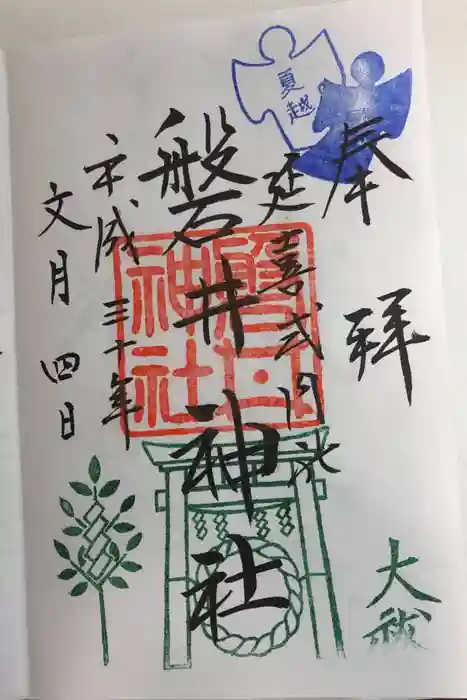 奉拝
夏越
大祓
延喜式内社
磐井神社
磐井神社
平成三十年
文月四日